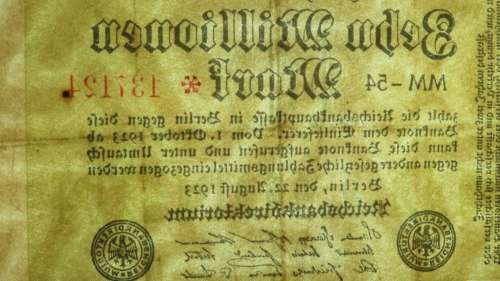 Zehn Millionen
Mark
MM-54 * 137124
zahlt die Reichsbankhauptkasse in Berlin gegen diese
Banknote dem Einlieferer. Vom 1. Oktober 1923 ab
kann diese Banknote aufgerufen und unter Umtausch
gegen andere gesetzliche Zahlungsmittel eingezogen werden
Berlin, den 22. August 1923
Reichsbankdirektorium
REICHSBANKDIREKTORIUM
REICHSBANKDIREKTORIUM